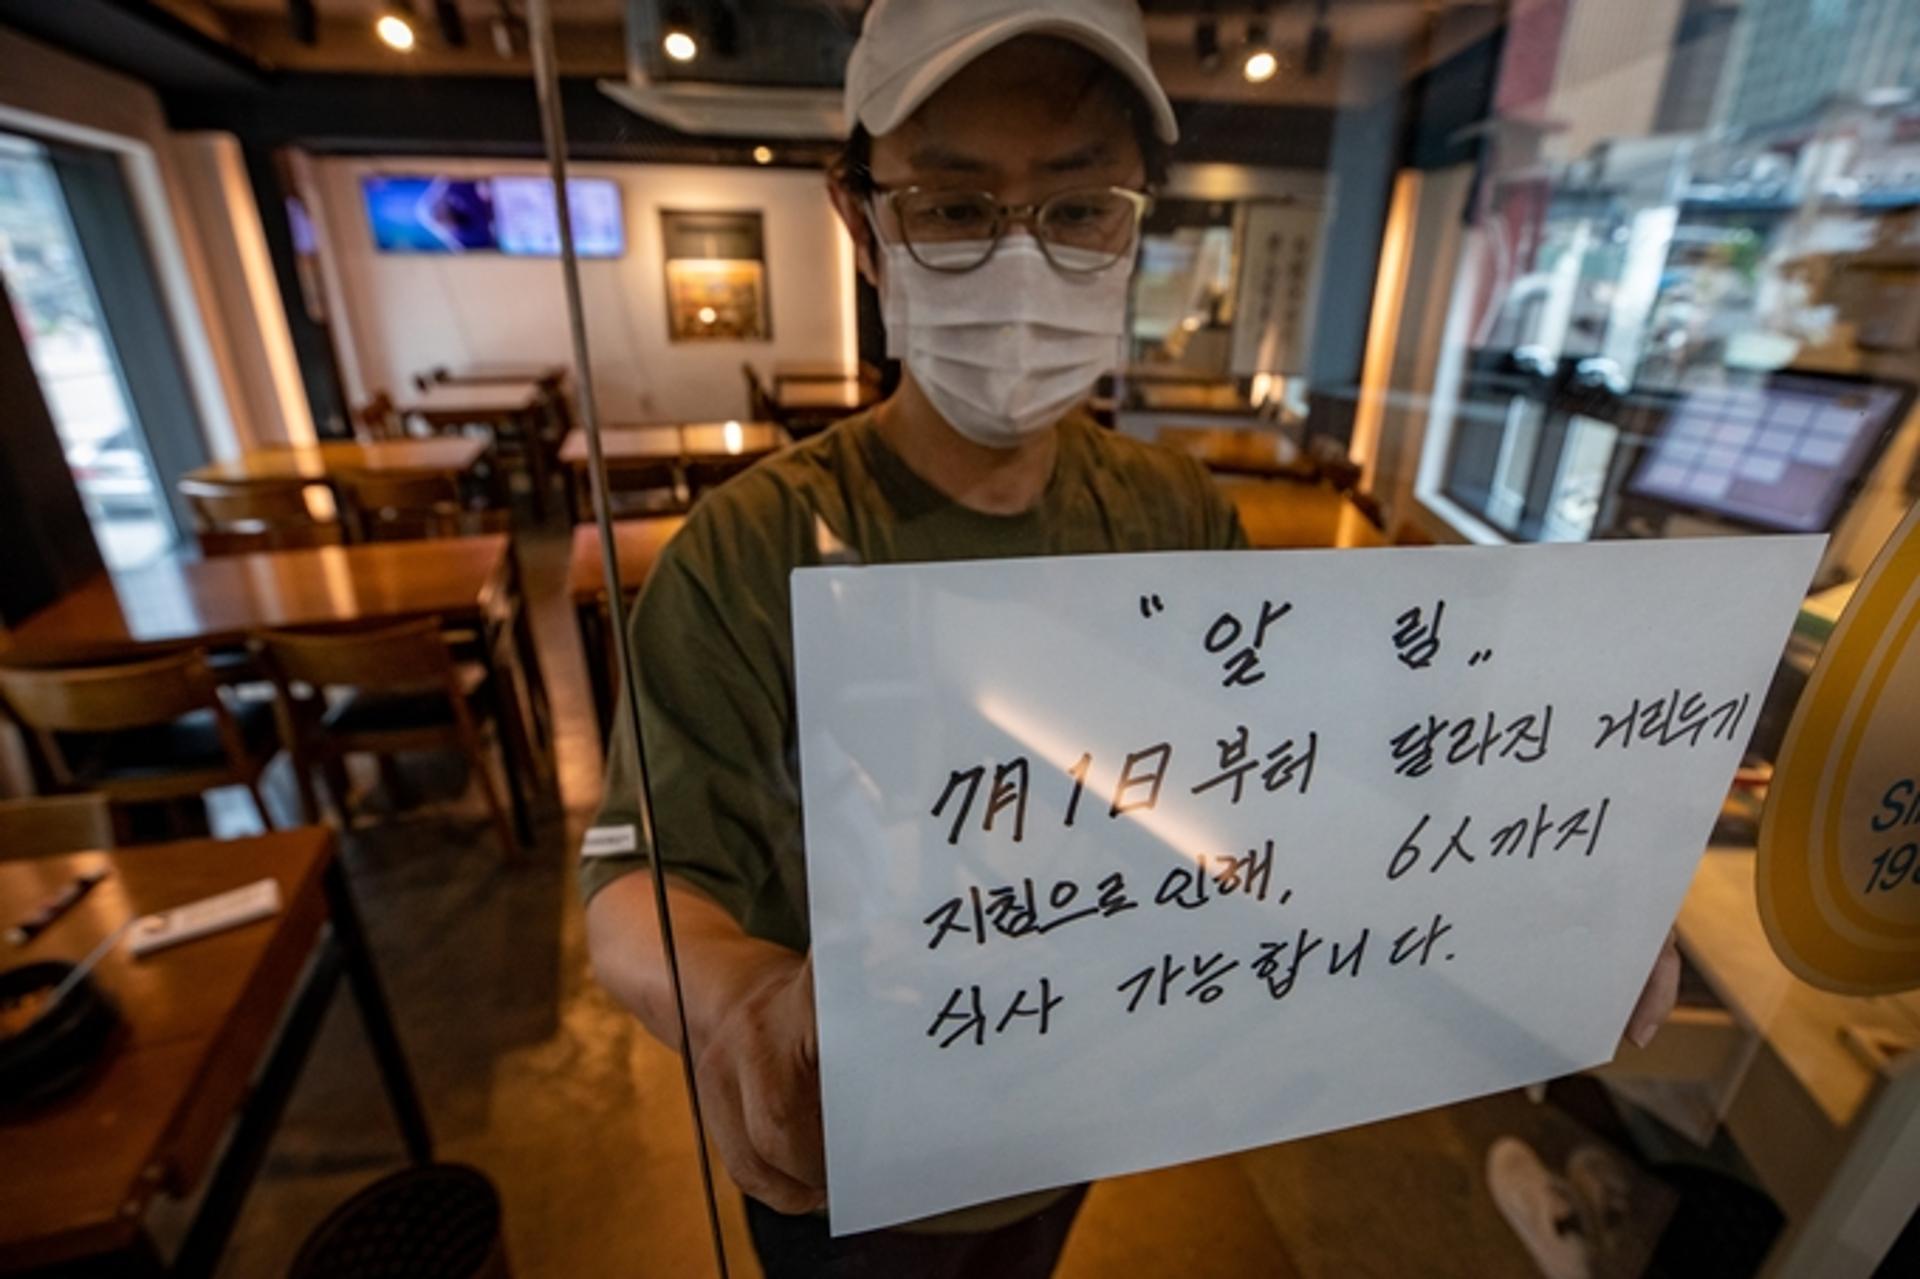 "알 림"
7月 1日부터 달라진 거리두기
지침으로 인해, 6人까지
식사 가능합니다.